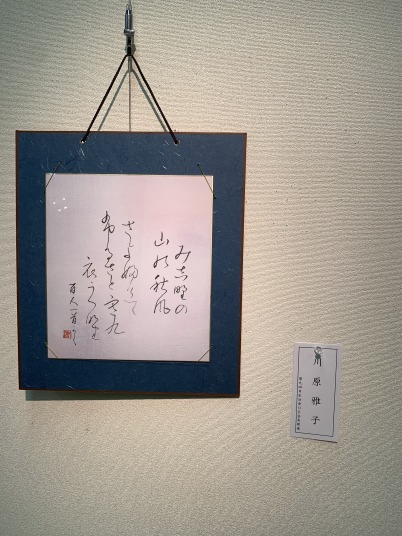 み吉野の
山の秋風
さよふけて
ふるさと寒く
衣うつなり
百人一首より
原 雅子